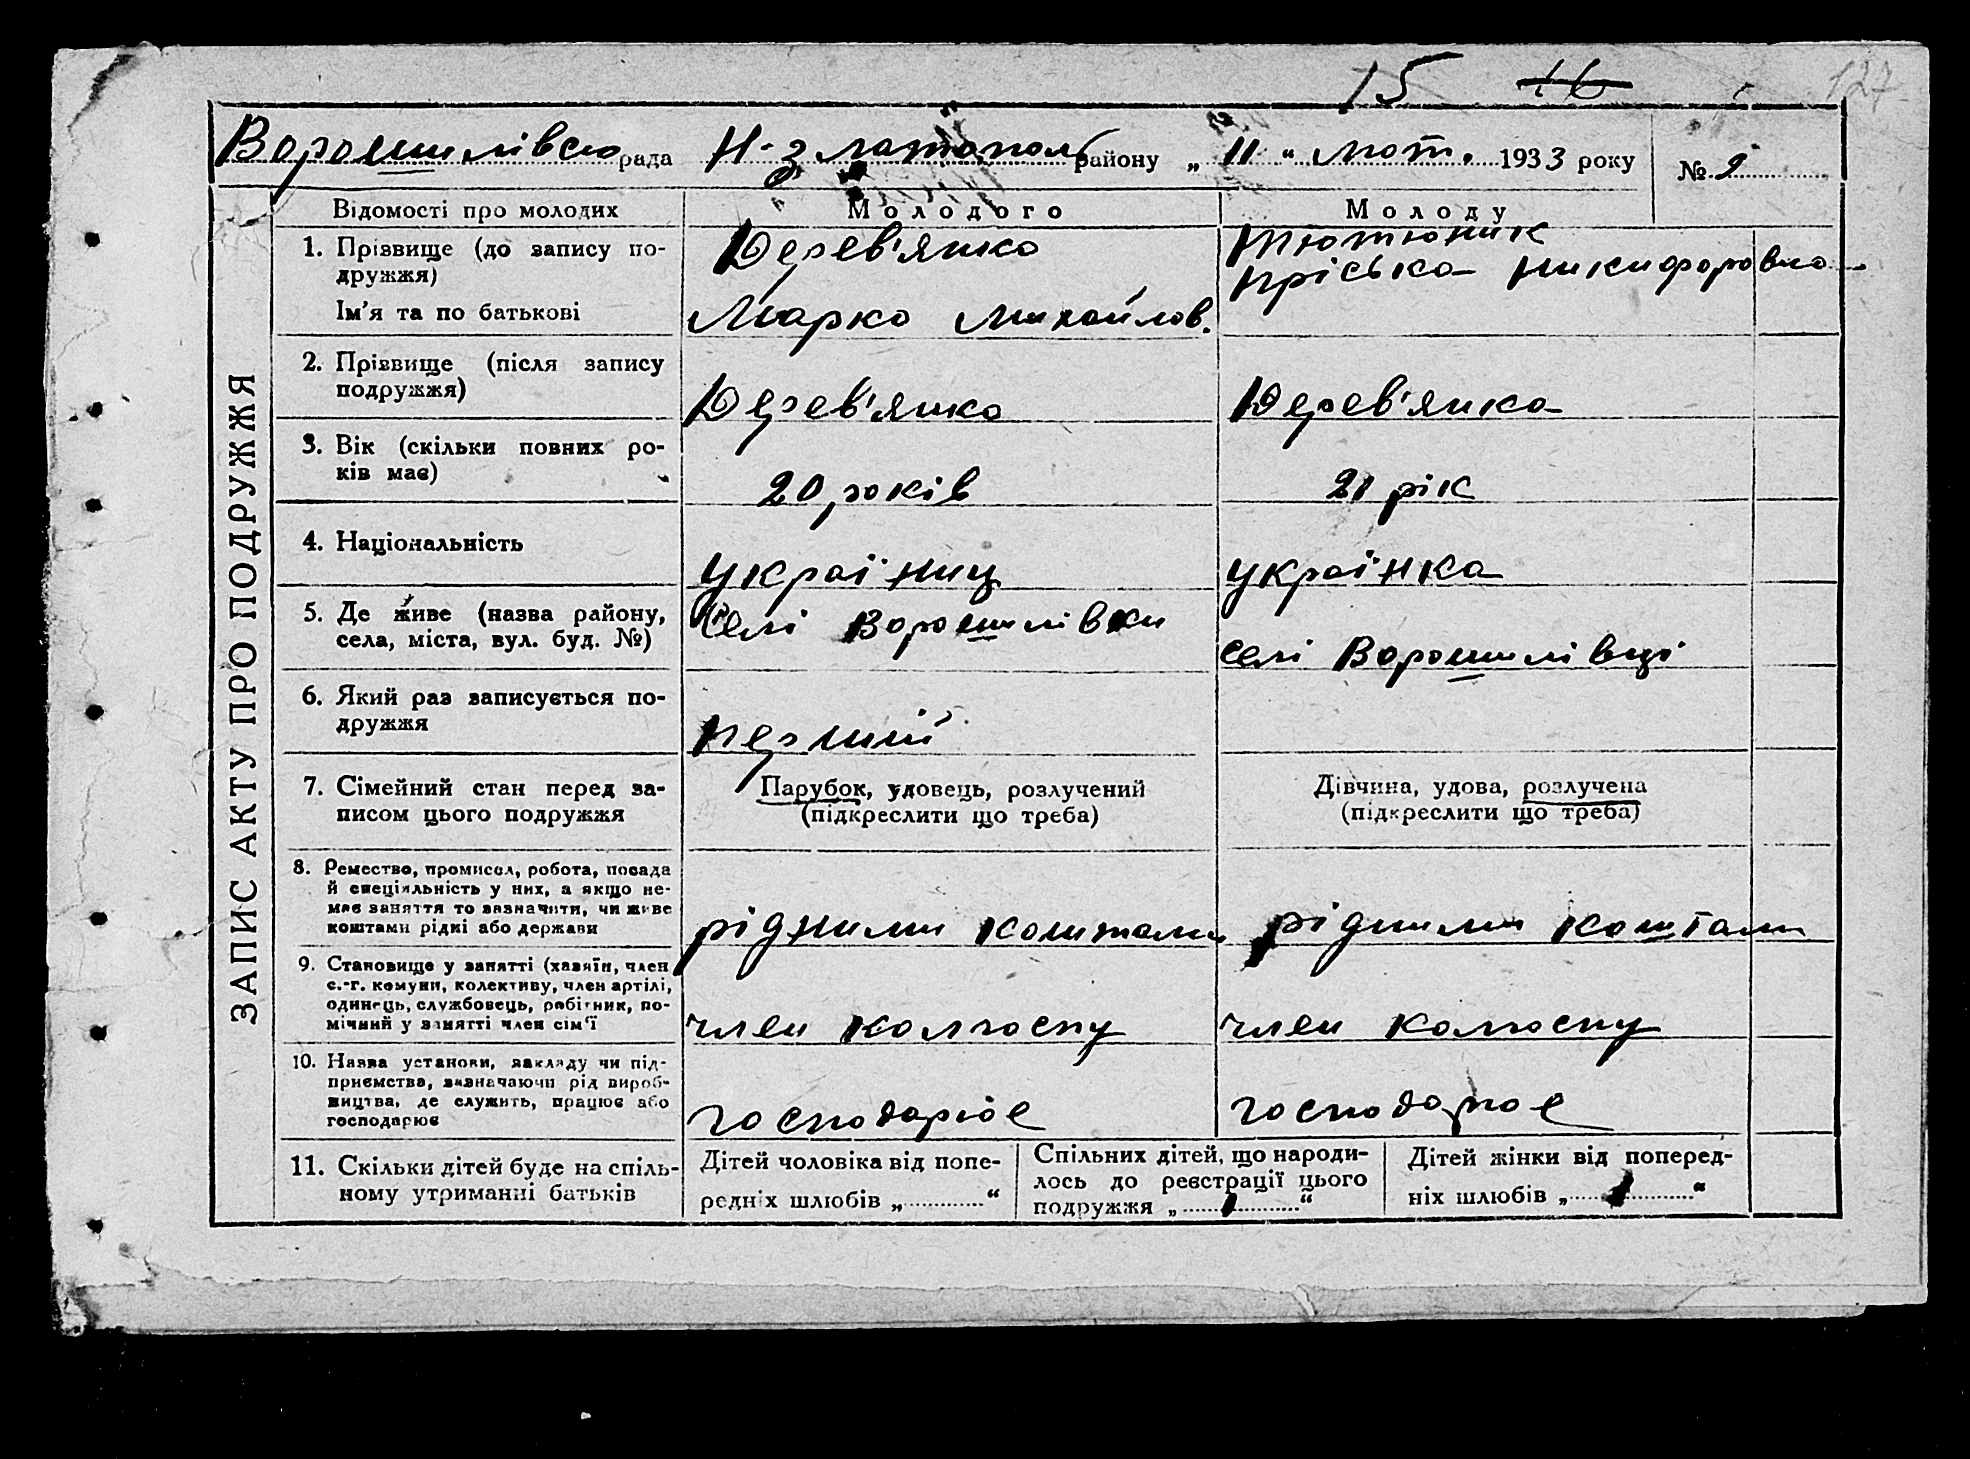 15 16 127
Ворошилівська рада Н-златопол району „11" лют. 1933 року № 9
ЗАПИС АКТУ ПРО ПОДРУЖЖЯ
Відомості про молодих Молодого Молоду
1. Прізвище (до запису по-
дружжя)
Ім'я та по батькові
Дерев'янко
Марко Михайлов.
Тютюник
Пріська Никифоровна
2. Прізвище (після запису
подружжя)
Дерев'янко
Дерев'янка
3. Вік (скільки повних ро-
ків має)
20 років
21 рік
4. Національність
україниц
українка
5. Де живе (назва району,
села, міста, вул. буд. №)
Селі Ворошилівки
Селі Ворошилівці
6. Який раз записується по-
дружжя
перший
7. Сімейний стан перед за-
писом цього подружжя
Парубок, удовець, розлучений
(підкреслити що треба)
Дівчина, удова, розлучена
(підкреслити що треба)
8. Ремество, промисел, робота, посада
й спеціяльність у них, а якщо не-
має заняття то зазначити, чи живе
коштами рідні або держави
рідними коштами
рідними коштами
9. Становище у занятті (хазяїн, член
с.-г. комуни, колективу, член артілі,
одинець, службовець, робітник, по-
мічний у занятті член сім'ї
член колгоспу
член колгоспу
10. Назва установи, закладу чи під-
приємства, зазначаючи рід вироб-
ництва, де служить, працює або
господарює
господарює
господарює
11. Скільки дітей буде на спіль-
ному утриманні батьків
Дітей чоловіка від попе-
редніх шлюбів „ "
Спільних дітей, що народи-
лось до реєстрації цього
подружжя „ 1 "
Дітей жінки від поперед-
ніх шлюбів „ 1 "